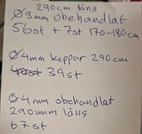 290cm lång
Ø3mm obehandlat
56st + 7st 170-180cm
Ø4mm koppar 290cm
39st
Ø4mm obehandlat
290mm lång
67st